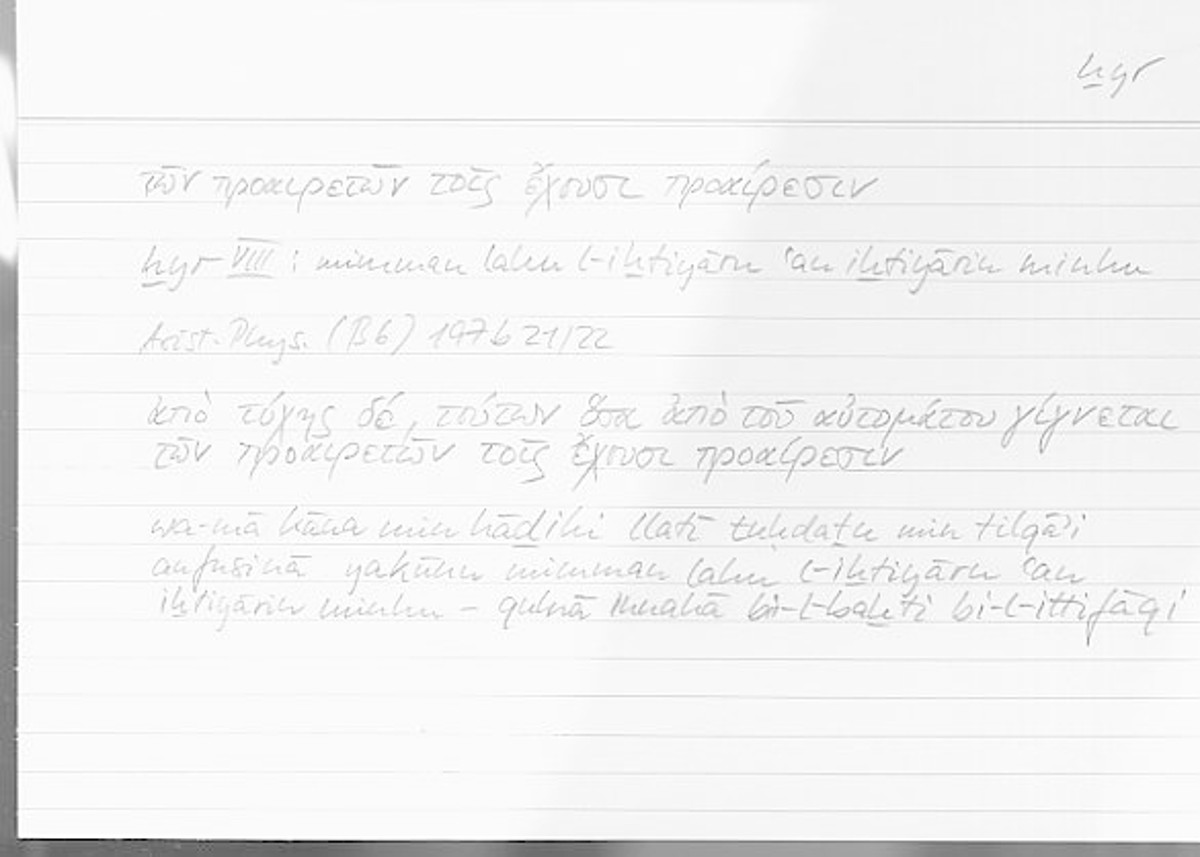 ḫyr
τῶν προαιρετῶν τοῖς ἔχουσι προαίρεσιν
ḫyr VIII : mimman lahu l-iḫtiyāru ʿan iḫtiyārin minhu
Arist. Phys. (B6) 197b 21/22
ἀπὸ τύχης δέ, τούτων ὅσα ἀπὸ τοῦ αὐτομάτου γίγνεται
τῶν προαιρετῶν τοῖς ἔχουσι προαίρεσιν
wa-mā kāna min hāḏihi llatī tuḥdaṯu min tilqāʾi
anfusihā yakūnu mimman lahu l-iḫtiyāru ʿan
iḫtiyārin minhu – qulnā innahā bi-l-baḫti bi-l-ittifāqi